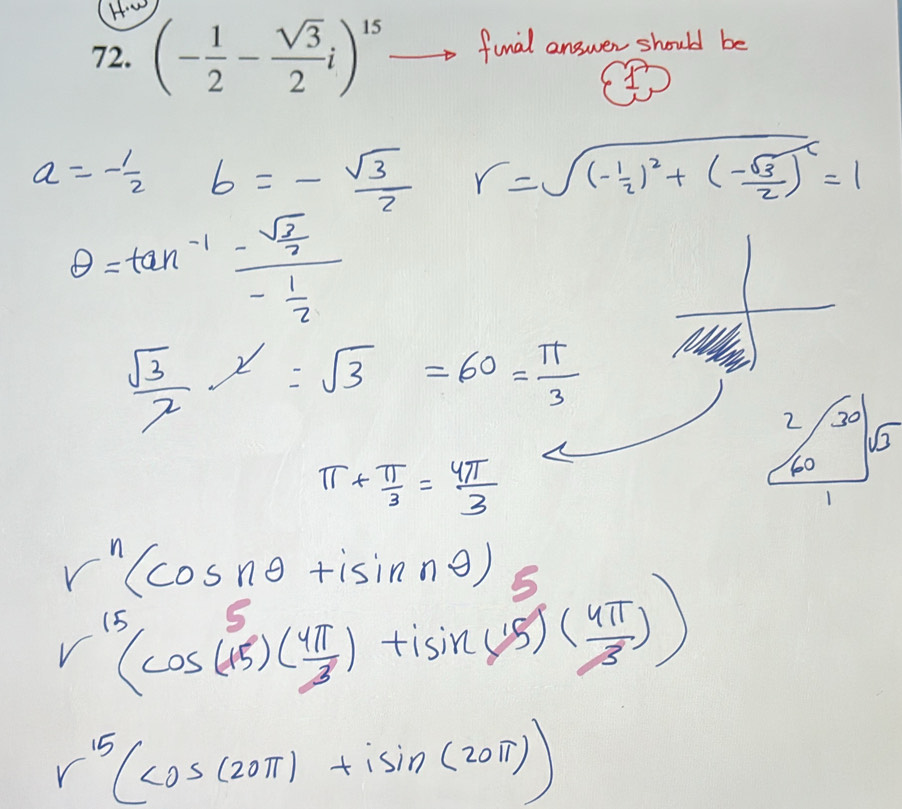 H.W
72. (-1/2 - √3/2 i)^15 → final answer should be
1
a = -1/2 b = - √3/2 r = √((-1/2)² + (-√3/2)²) = 1
θ = tan⁻¹ (-√3/2)/(-1/2)
√3/2 · 2 = √3 = 60 = π/3
2 30 √3
60
1
π + π/3 = 4π/3
rⁿ(cos nθ + i sin nθ)
5 5
r¹⁵(cos(15)(4π/3) + i sin(15)(4π/3))
r¹⁵(cos(20π) + i sin(20π))